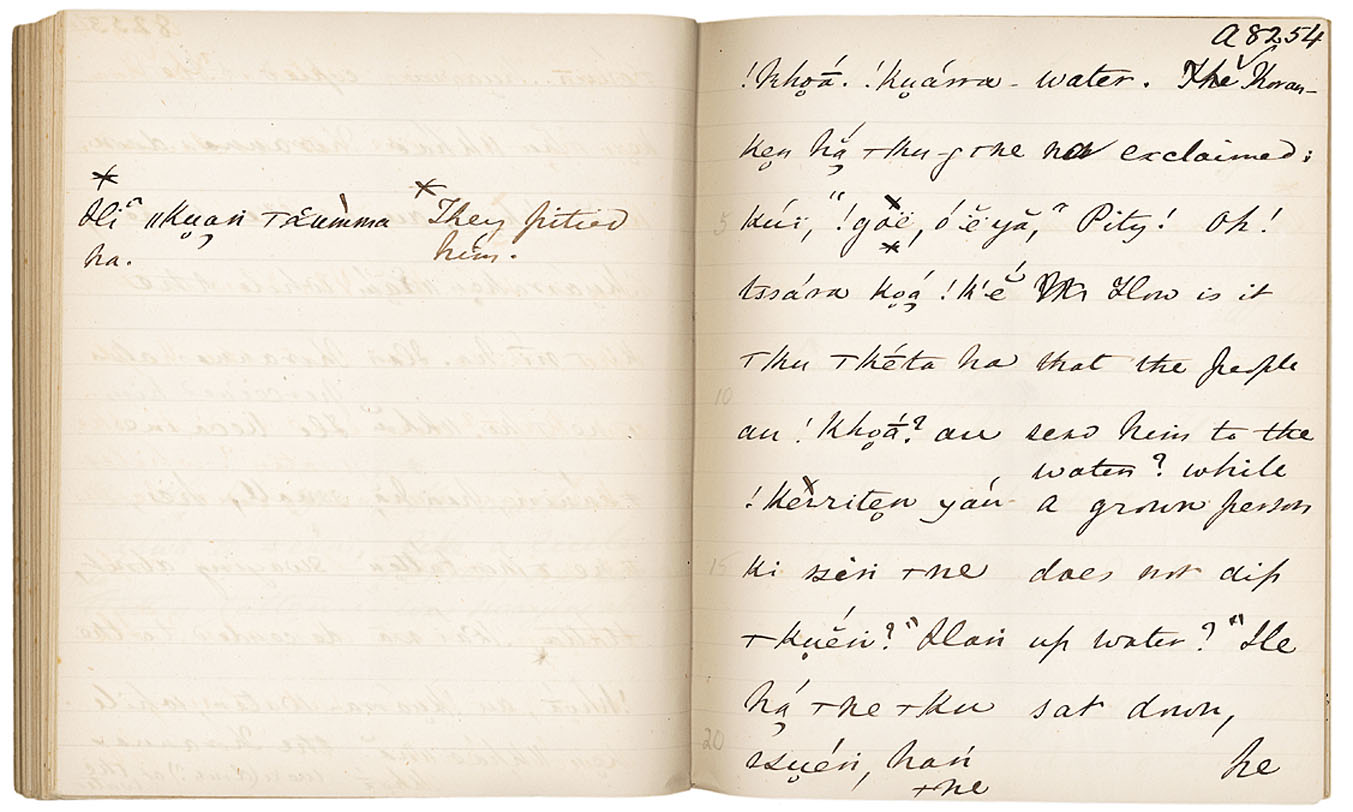 Hi ‖ku̥an̄ ⊤áùmma
ha.
They pitied
him.
A 8254
!kho̥ā́. !ku̥árra - water. The Koran-
ke̥n hą́ ⊤ku-g ⊤ne na exclaimed:
5 kúï, "!gòë, óĕyă, Pity! Oh!
tssára ko̥á !k'ĕ́ How is it
⊤ku ⊤kéta ha that the people
10
au !kho̥ā́? au send him to the
water? while
!kèrrite̥n yáu a grown person
15 ki ssin ⊤ne does not dip
⊤ku̥ĕ́n?" Han up water?" He
hą́ ⊤ne ⊤ku sat down,
20 ssu̥én, han he
⊤ne